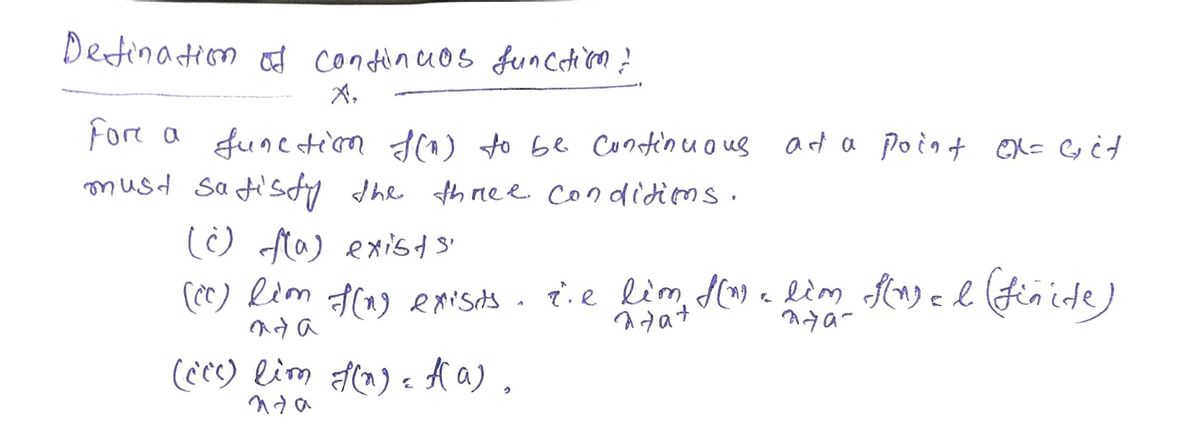 Defination of continuos function :
x.
Fore a function f(x) to be continuous at a point x = c, it
must satisfy the three conditions.
(i) f(a) exists
(ii) lim f(x) exists . i.e lim f(x) = lim f(x) = l (finite)
x→a x→a+ x→a-
(iii) lim f(x) = f(a) ,
x→a